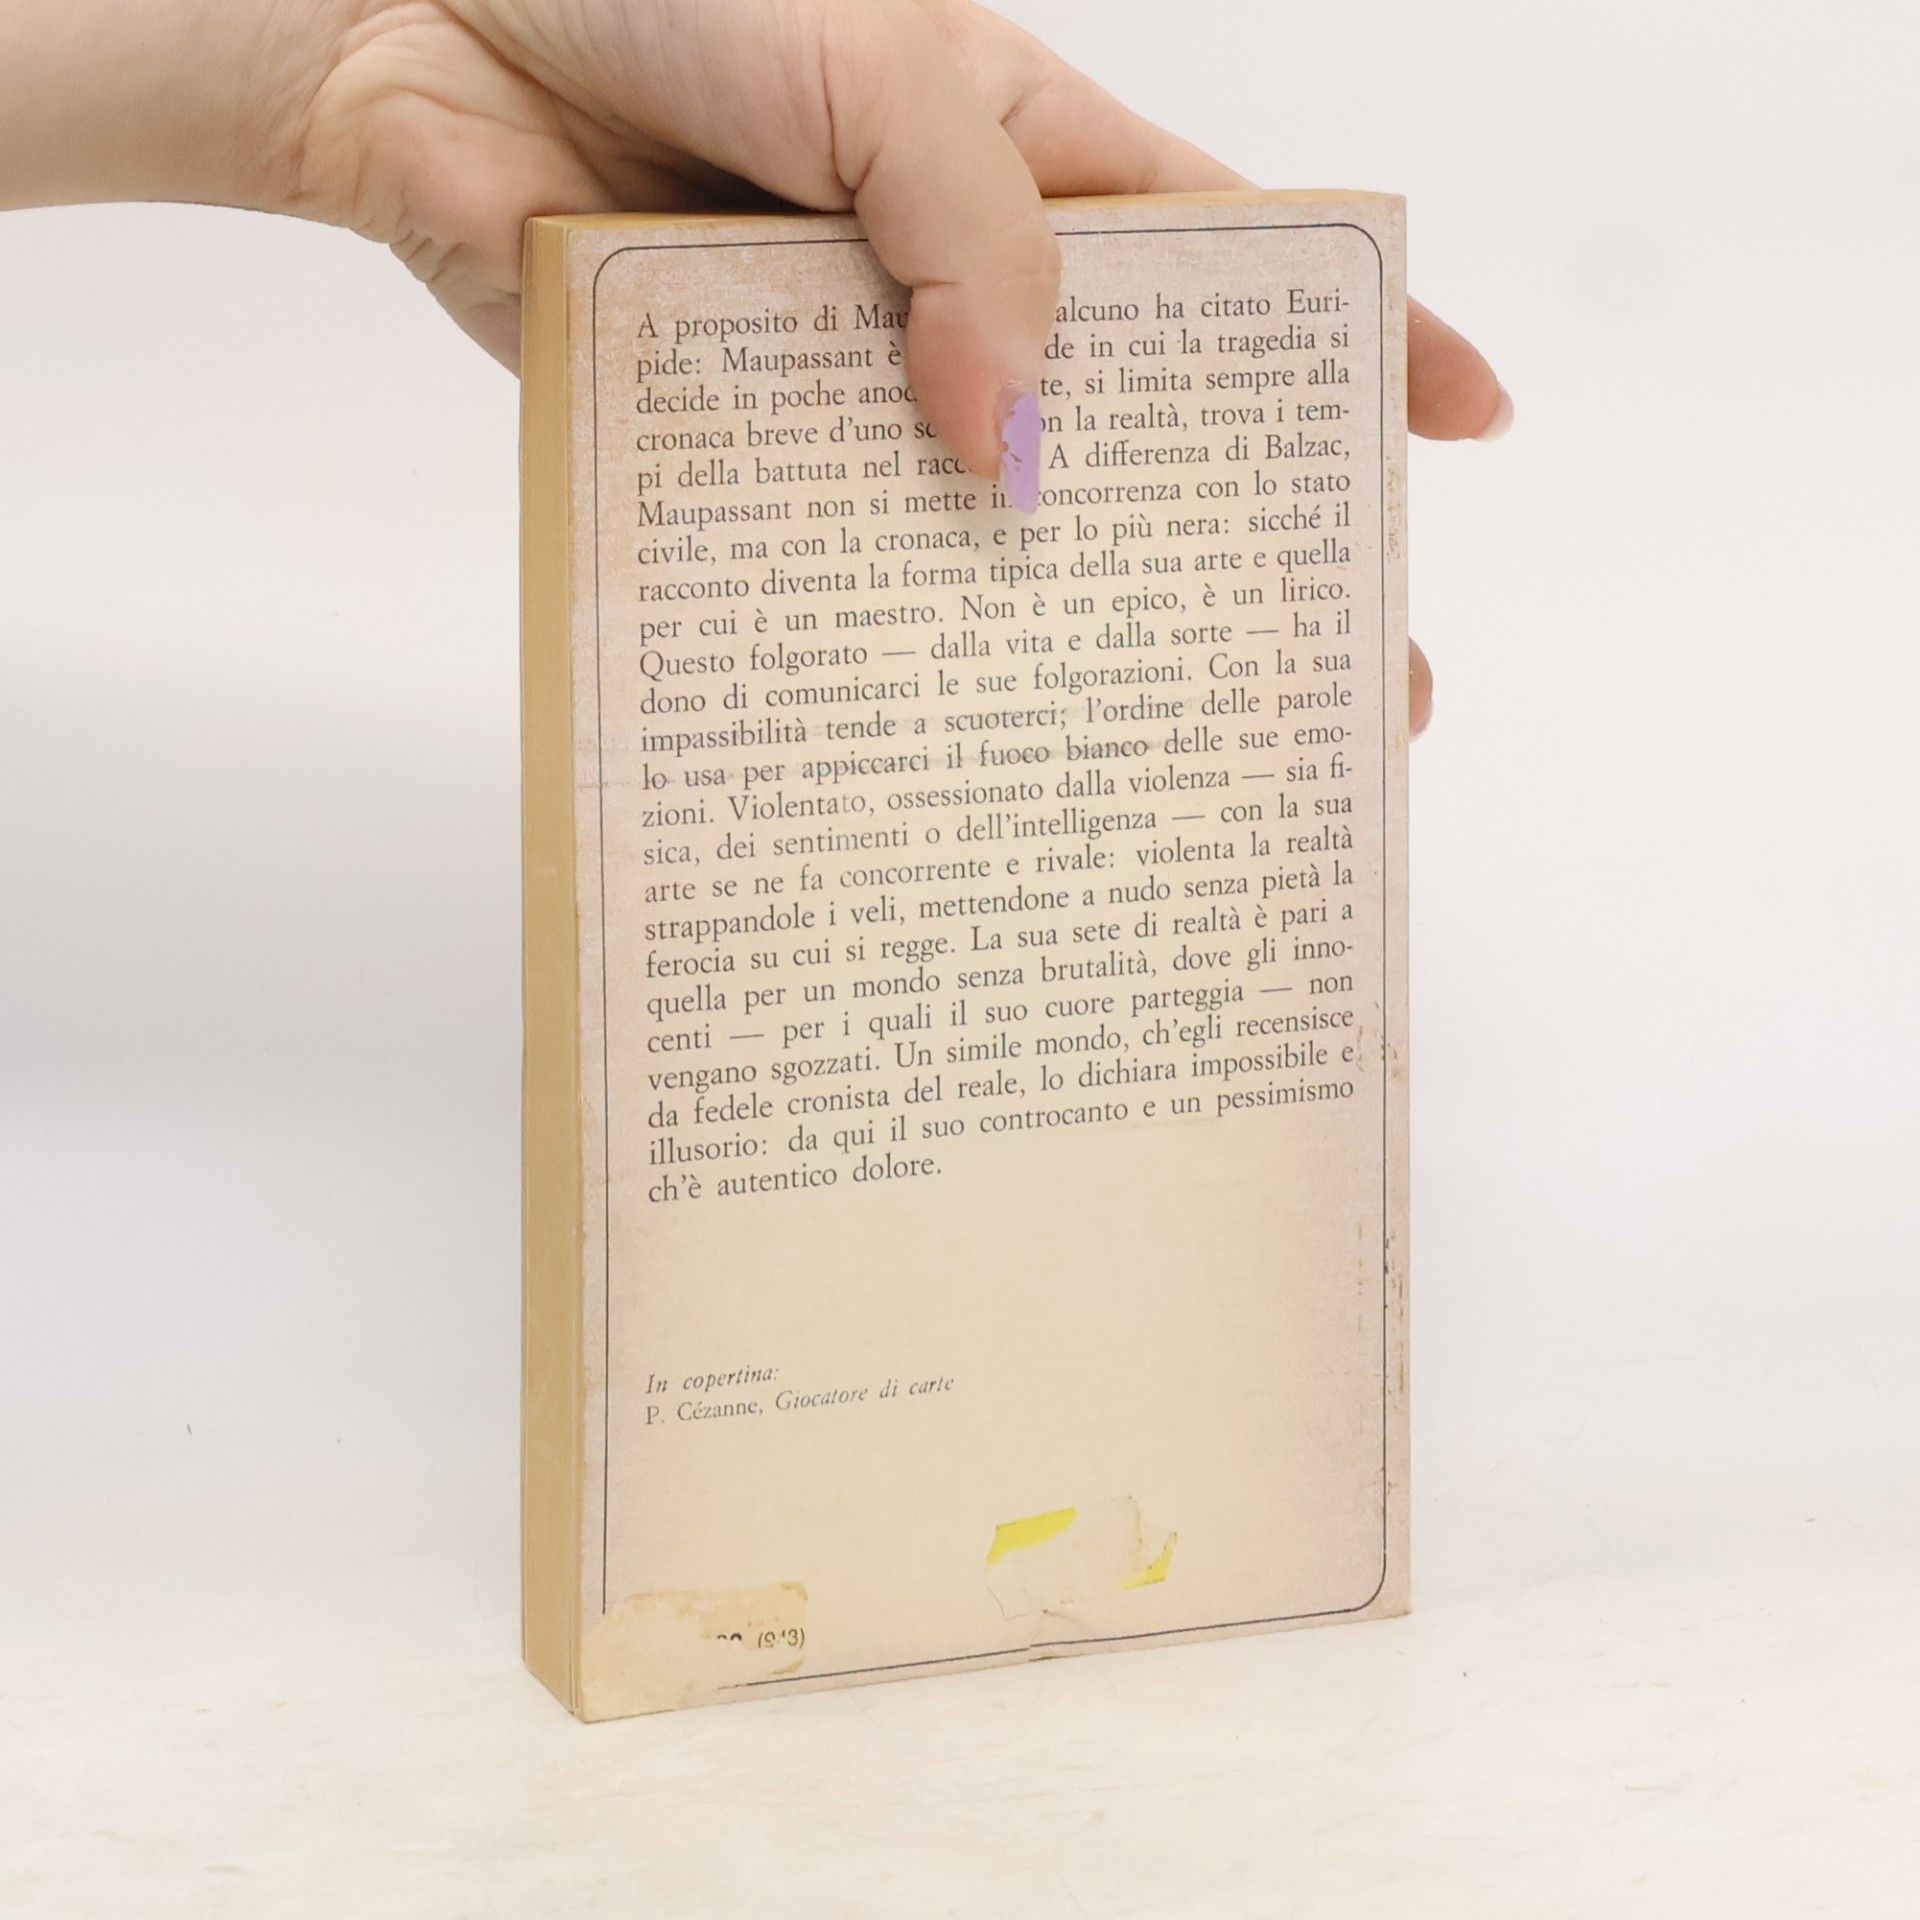 A proposito di Mau alcuno ha citato Euri-
pide: Maupassant è de in cui la tragedia si
decide in poche anod te, si limita sempre alla
cronaca breve d'uno sc on la realtà, trova i tem-
pi della battuta nel racc A differenza di Balzac,
Maupassant non si mette in concorrenza con lo stato
civile, ma con la cronaca, e per lo più nera: sicché il
racconto diventa la forma tipica della sua arte e quella
per cui è un maestro. Non è un epico, è un lirico.
Questo folgorato — dalla vita e dalla sorte — ha il
dono di comunicarci le sue folgorazioni. Con la sua
impassibilità tende a scuoterci; l'ordine delle parole
lo usa per appiccarci il fuoco bianco delle sue emo-
zioni. Violentato, ossessionato dalla violenza — sia fi-
sica, dei sentimenti o dell'intelligenza — con la sua
arte se ne fa concorrente e rivale: violenta la realtà
strappandole i veli, mettendone a nudo senza pietà la
ferocia su cui si regge. La sua sete di realtà è pari a
quella per un mondo senza brutalità, dove gli inno-
centi — per i quali il suo cuore parteggia — non
vengano sgozzati. Un simile mondo, ch'egli recensisce
da fedele cronista del reale, lo dichiara impossibile e
illusorio: da qui il suo controcanto e un pessimismo
ch'è autentico dolore.
In copertina:
P. Cézanne, Giocatore di carte
(943)